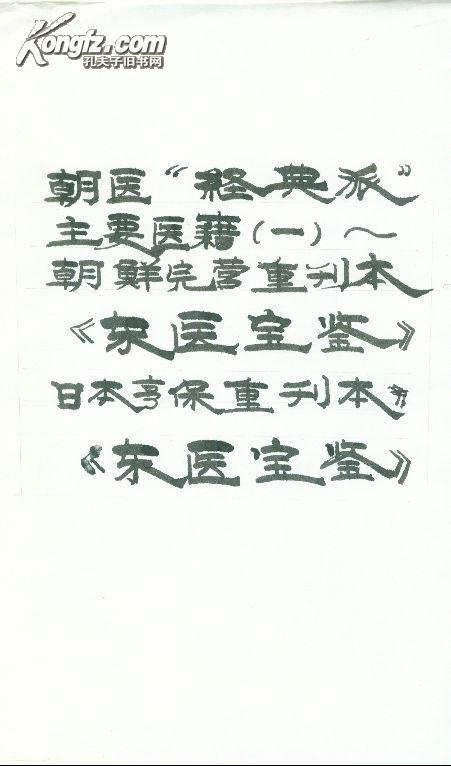 Kongfz.com
孔夫子旧书网
朝医“经典派”
主要医籍(一)～
朝鲜完营重刊本
《东医宝鉴》
日本亨保重刊本
《东医宝鉴》